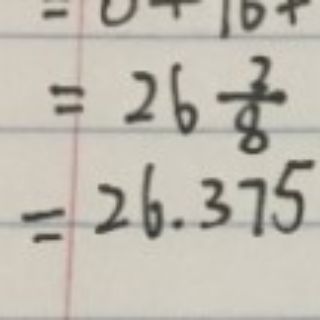 = 26 3/8
= 26.375